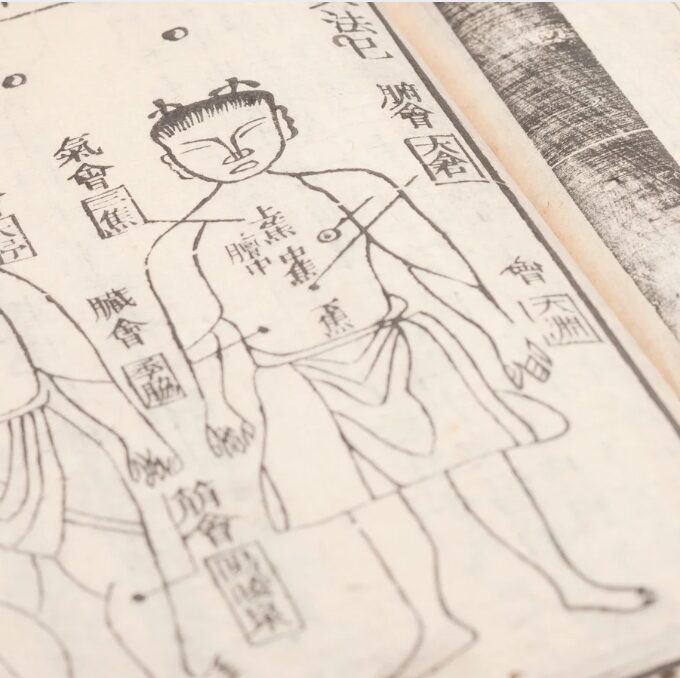 法
腑會
大倉
氣會
三焦
上焦
中焦
膻中
焦
臟會
季脇
會
筋會
陽陵泉